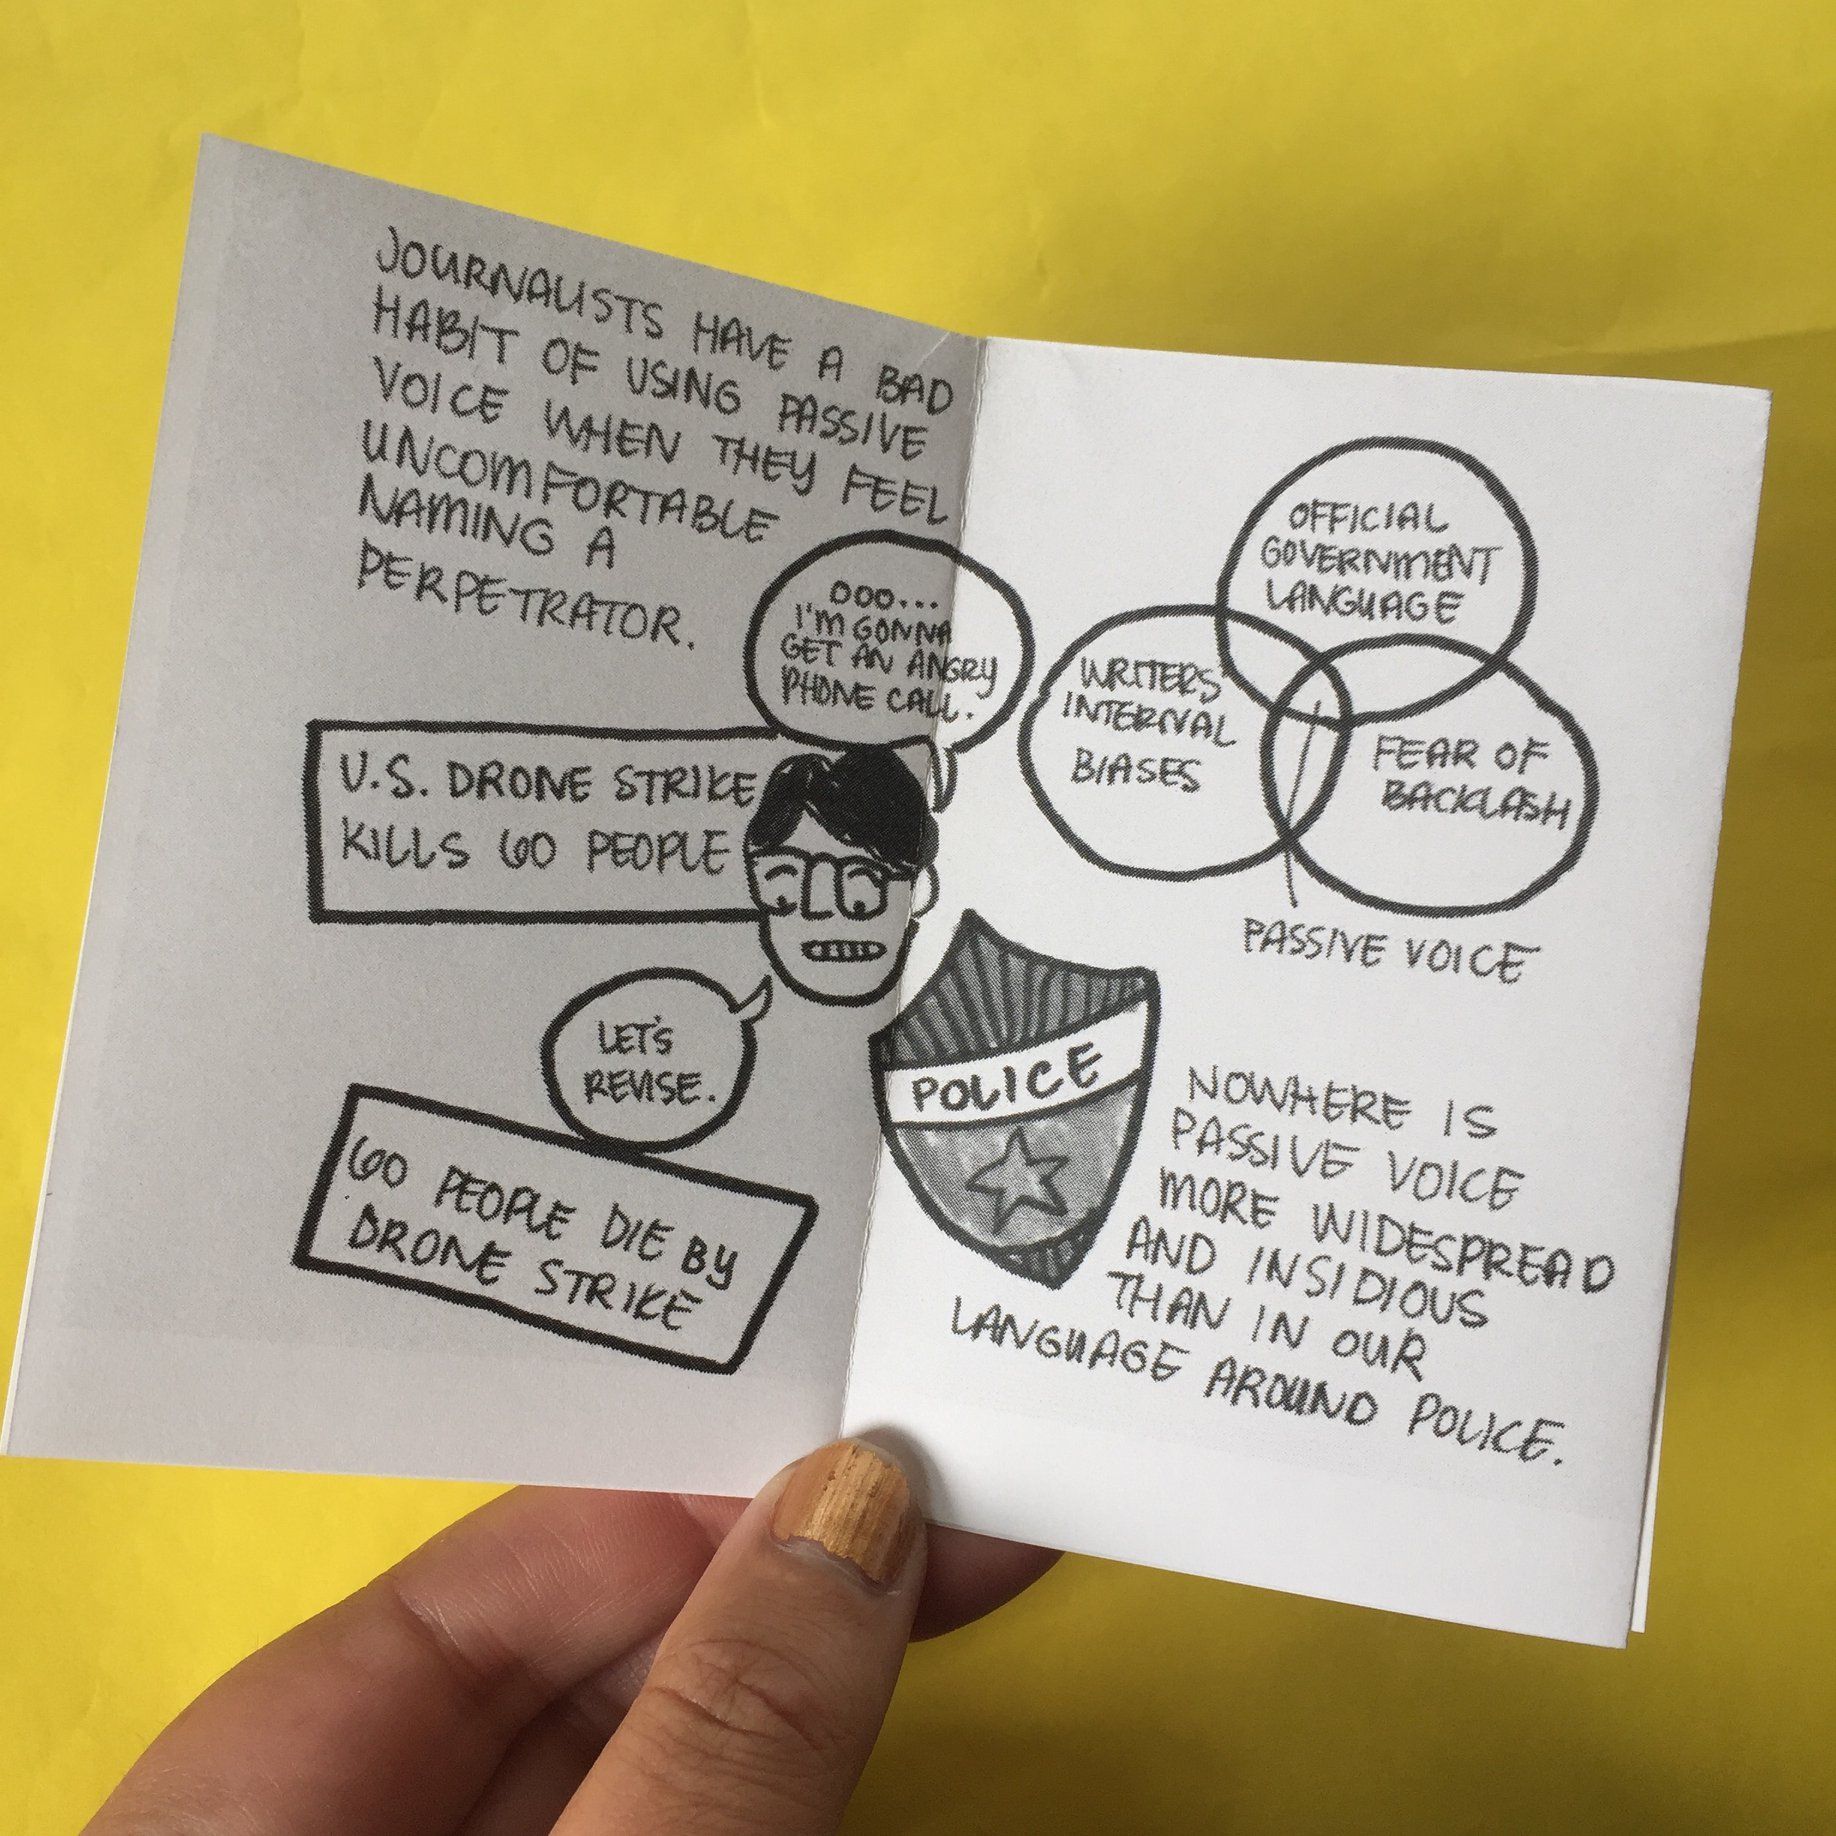 JOURNALISTS HAVE A BAD
HABIT OF USING PASSIVE
VOICE WHEN THEY FEEL
UNCOMFORTABLE
NAMING A
PERPETRATOR.
OOO...
I'M GONNA
GET AN ANGRY
PHONE CALL.
U.S. DRONE STRIKE
KILLS 60 PEOPLE
LET'S
REVISE.
60 PEOPLE DIE BY
DRONE STRIKE
OFFICIAL
GOVERNMENT
LANGUAGE
WRITERS'
INTERNAL
BIASES
FEAR OF
BACKLASH
PASSIVE VOICE
POLICE
NOWHERE IS
PASSIVE VOICE
MORE WIDESPREAD
AND INSIDIOUS
THAN IN OUR
LANGUAGE AROUND POLICE.